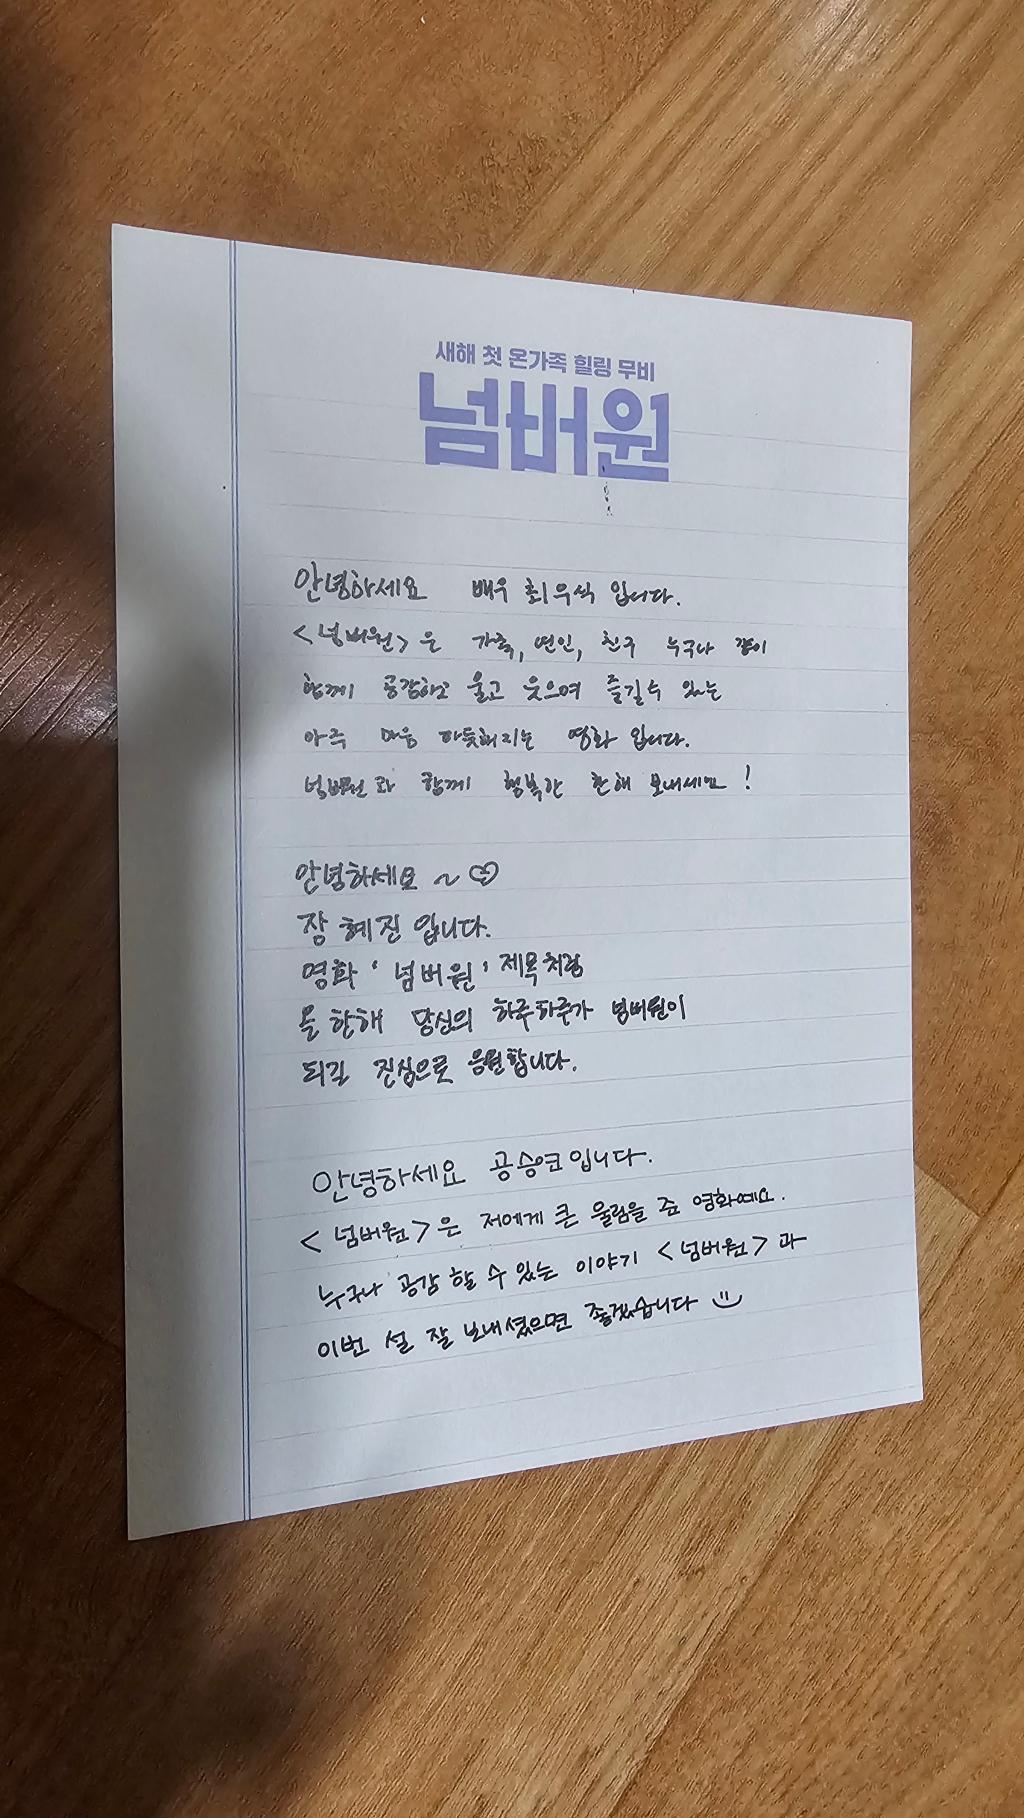 새해 첫 온가족 힐링 무비
넘버원
안녕하세요 배우 최우식 입니다.
<넘버원>은 가족, 연인, 친구 누구나 같이
함께 공감하고 울고 웃으며 즐길수 있는
아주 마음 따뜻해지는 영화 입니다.
넘버원과 함께 행복한 한해 보내세요!
안녕하세요~♡
장혜진입니다.
영화 '넘버원' 제목처럼
올 한해 당신의 하루하루가 넘버원이
되길 진심으로 응원합니다.
안녕하세요 공승연입니다.
<넘버원>은 저에게 큰 울림을 준 영화예요.
누구나 공감할 수 있는 이야기 <넘버원>과
이번 설 잘 보내셨으면 좋겠습니다